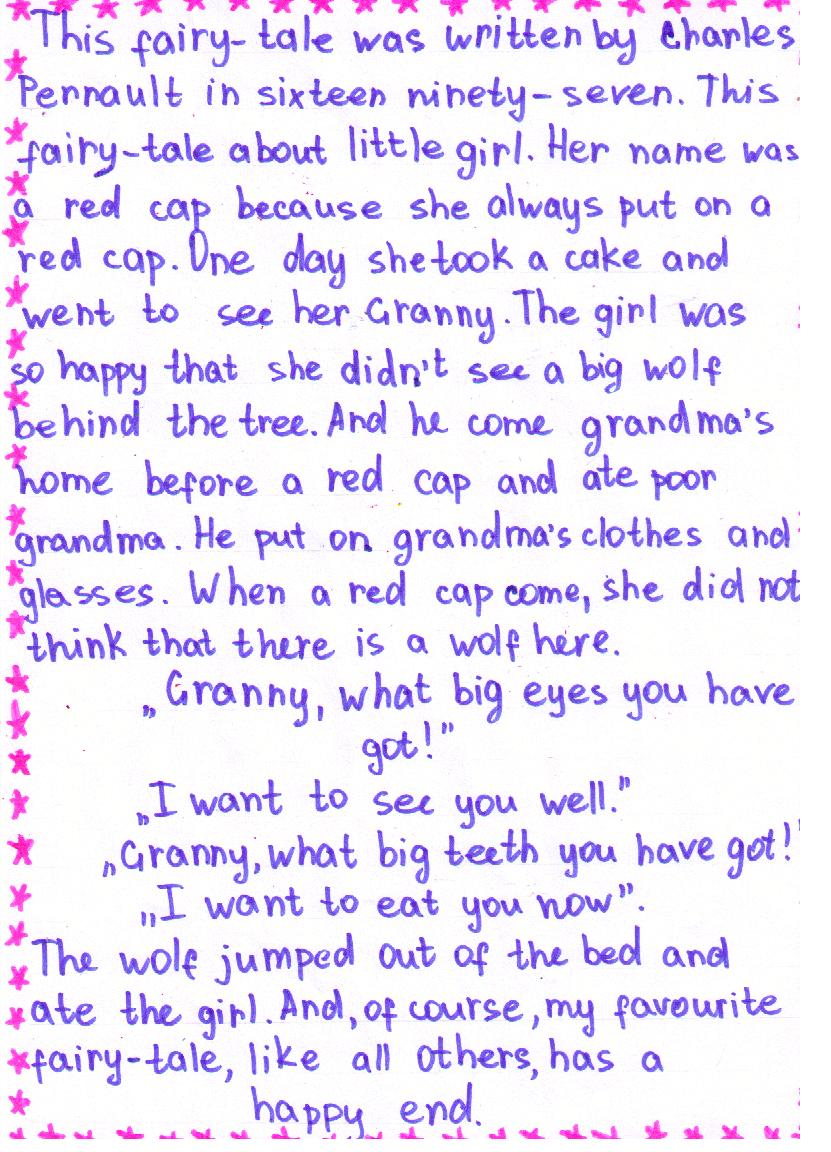 This fairy-tale was written by Charles
Perrault in sixteen ninety-seven. This
fairy-tale about little girl. Her name was
a red cap because she always put on a
red cap. One day she took a cake and
went to see her Granny. The girl was
so happy that she didn't see a big wolf
behind the tree. And he come grandma's
home before a red cap and ate poor
grandma. He put on grandma's clothes and
glasses. When a red cap come, she did not
think that there is a wolf here.
„Granny, what big eyes you have
got!"
„I want to see you well."
„Granny, what big teeth you have got!"
„I want to eat you now".
The wolf jumped out of the bed and
ate the girl. And, of course, my favourite
fairy-tale, like all others, has a
happy end.